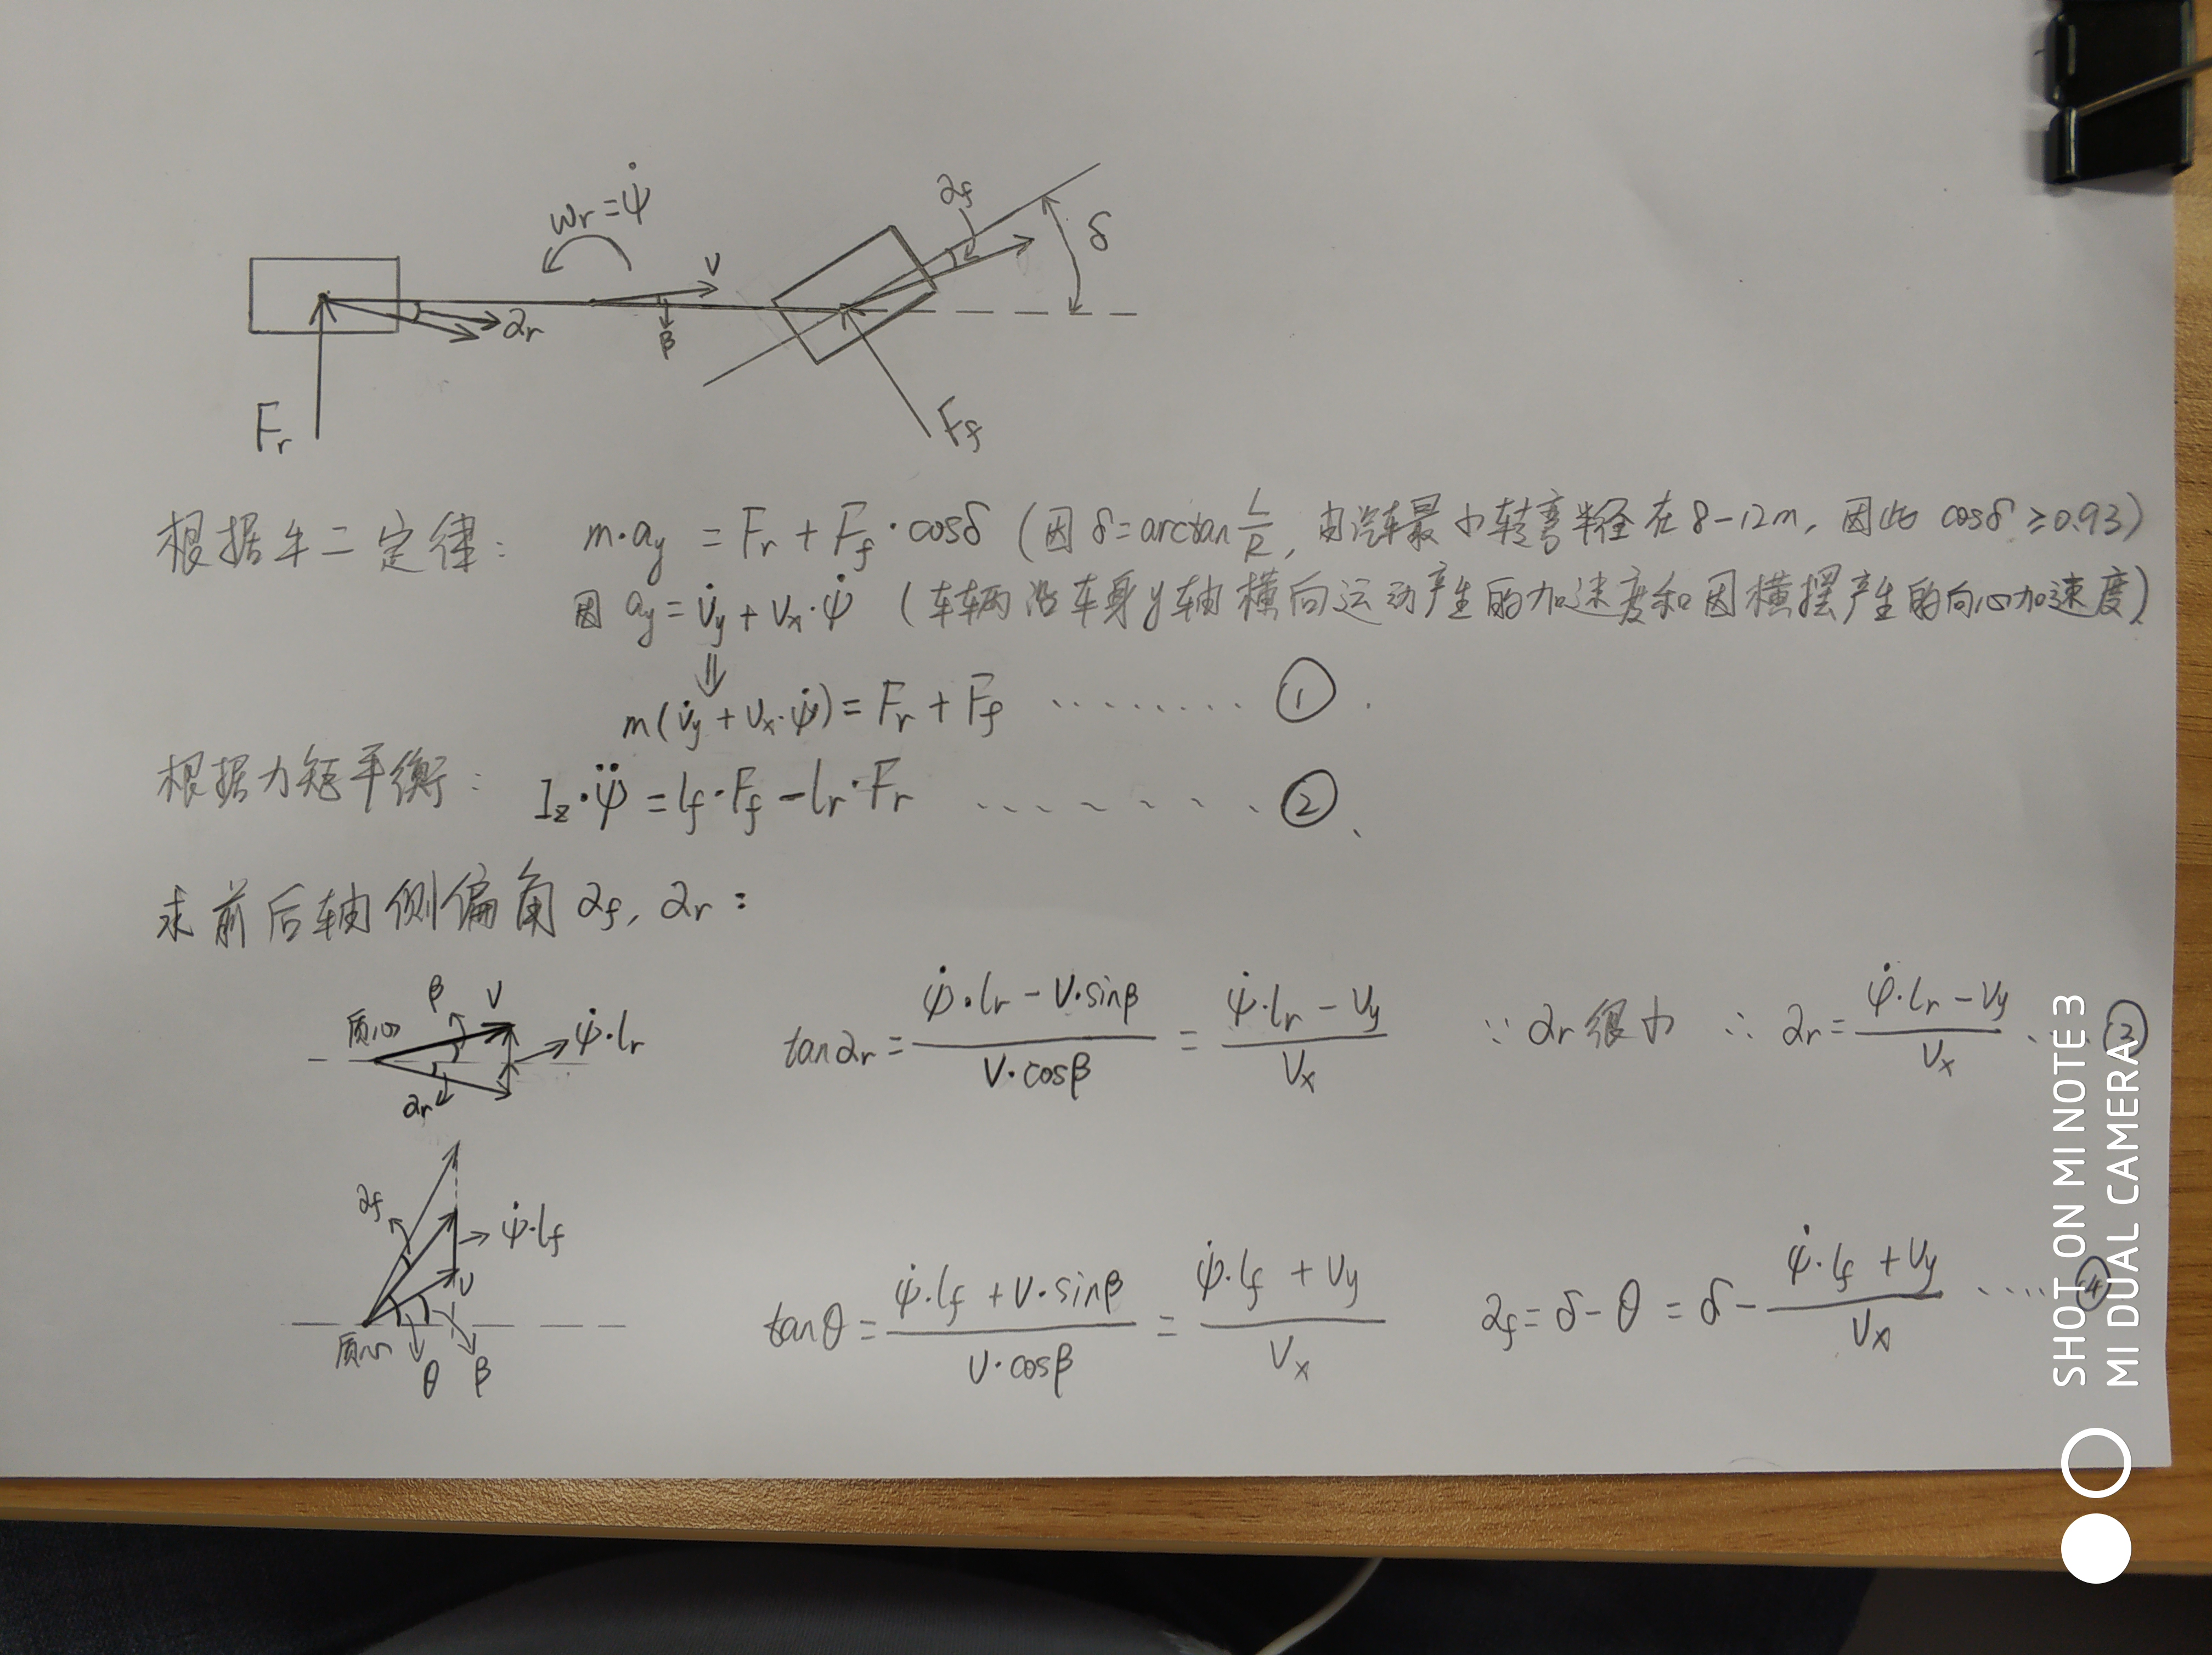 Fr
αr
Wr=ψ̇
β
V
Ff
αf
δ
根据牛二定律: m·ay = Fr + Ff·cosδ (因 δ=arctan L/R, 由汽车最小转弯半径在8-12m, 因此 cosδ ≥0.93)
因 ay = v̇y + vx·ψ̇ (车辆沿车身y轴横向运动产生的加速度和因横摆产生的向心加速度)
⇓
m(v̇y + vx·ψ̇) = Fr + Ff ······ ①
根据力矩平衡: Iz·ψ̈ = lf·Ff - lr·Fr ······ ②
求前后轴侧偏角 αf, αr:
质心 β V αr ψ̇·lr
tanαr = (ψ̇·lr - V·sinβ)/(V·cosβ) = (ψ̇·lr - Vy)/Vx ∵ αr很小 ∴ αr = (ψ̇·lr - Vy)/Vx ··· ③
质心 αf θ β V ψ̇·lf
tanθ = (ψ̇·lf + V·sinβ)/(V·cosβ) = (ψ̇·lf + Vy)/Vx αf = δ - θ = δ - (ψ̇·lf + Vy)/Vx ···· ④
SHOT ON MI NOTE 3
MI DUAL CAMERA